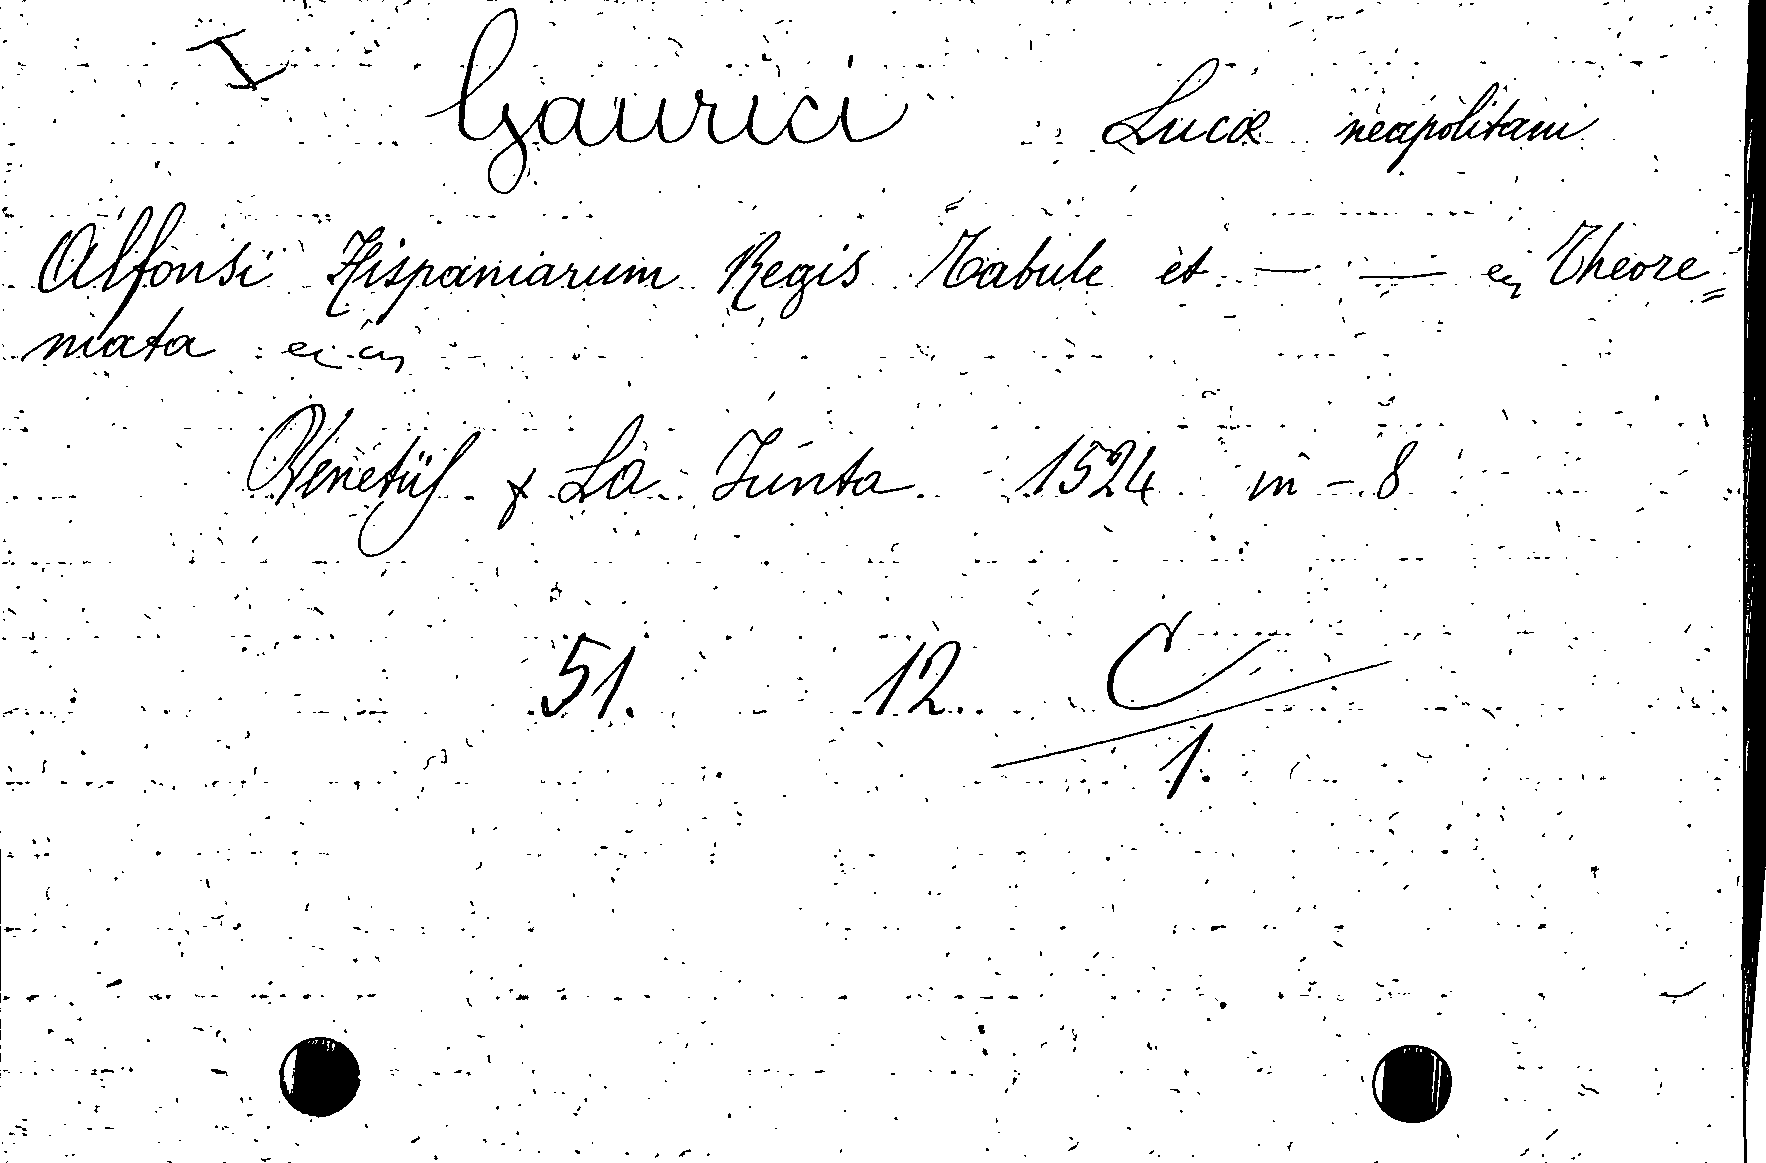 I Gaurici Lucæ neapolitani
Alfonsi Hispaniarum Regis Tabule et — — Theore=
mata
Venetiis La Junta 1524 in-8
51. 12. C/1.